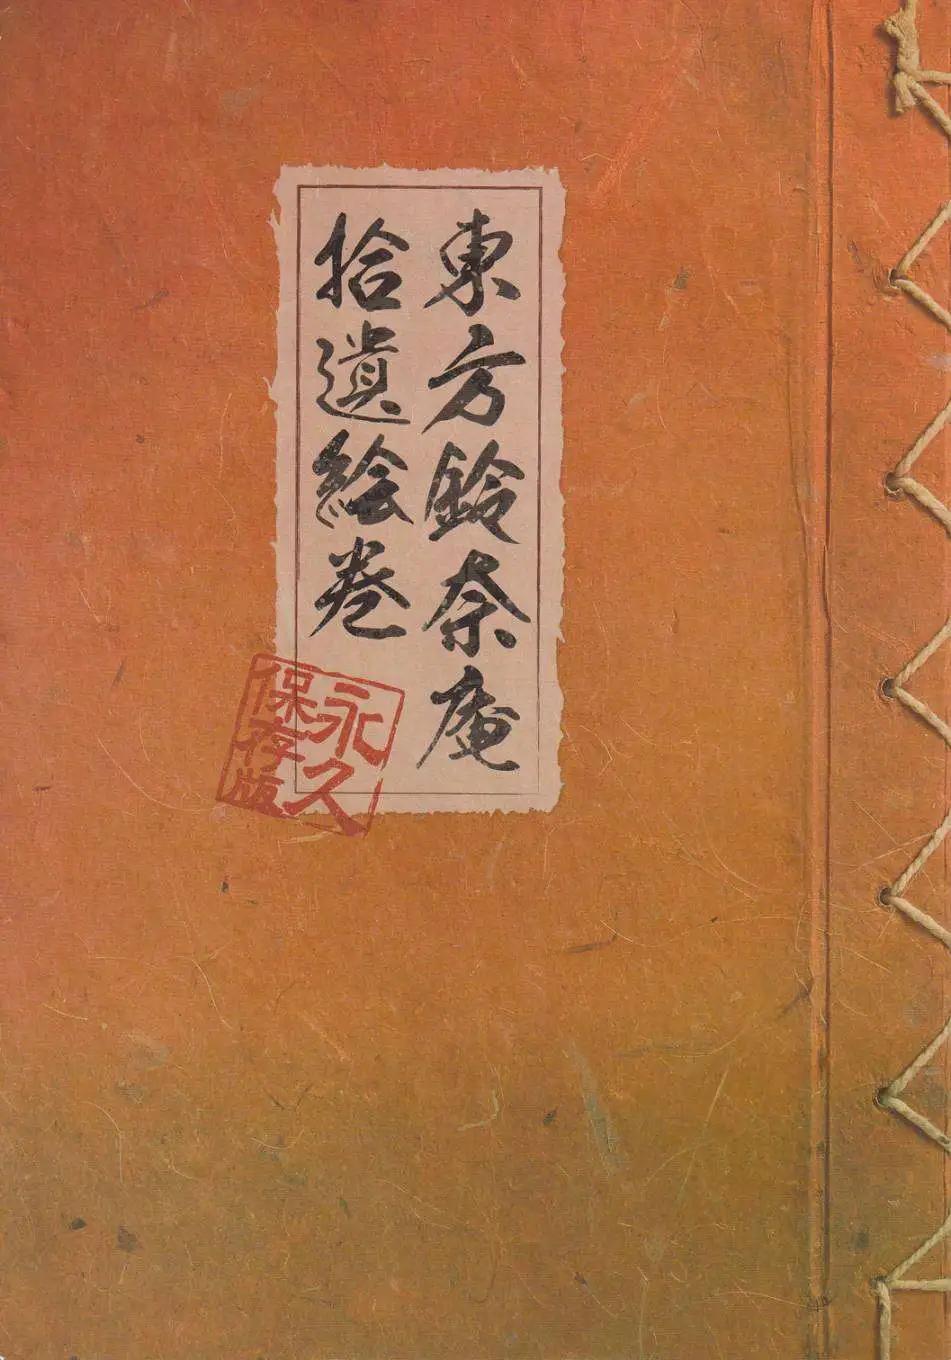 東方鈴奈庵
拾遺絵巻
永久
保存版